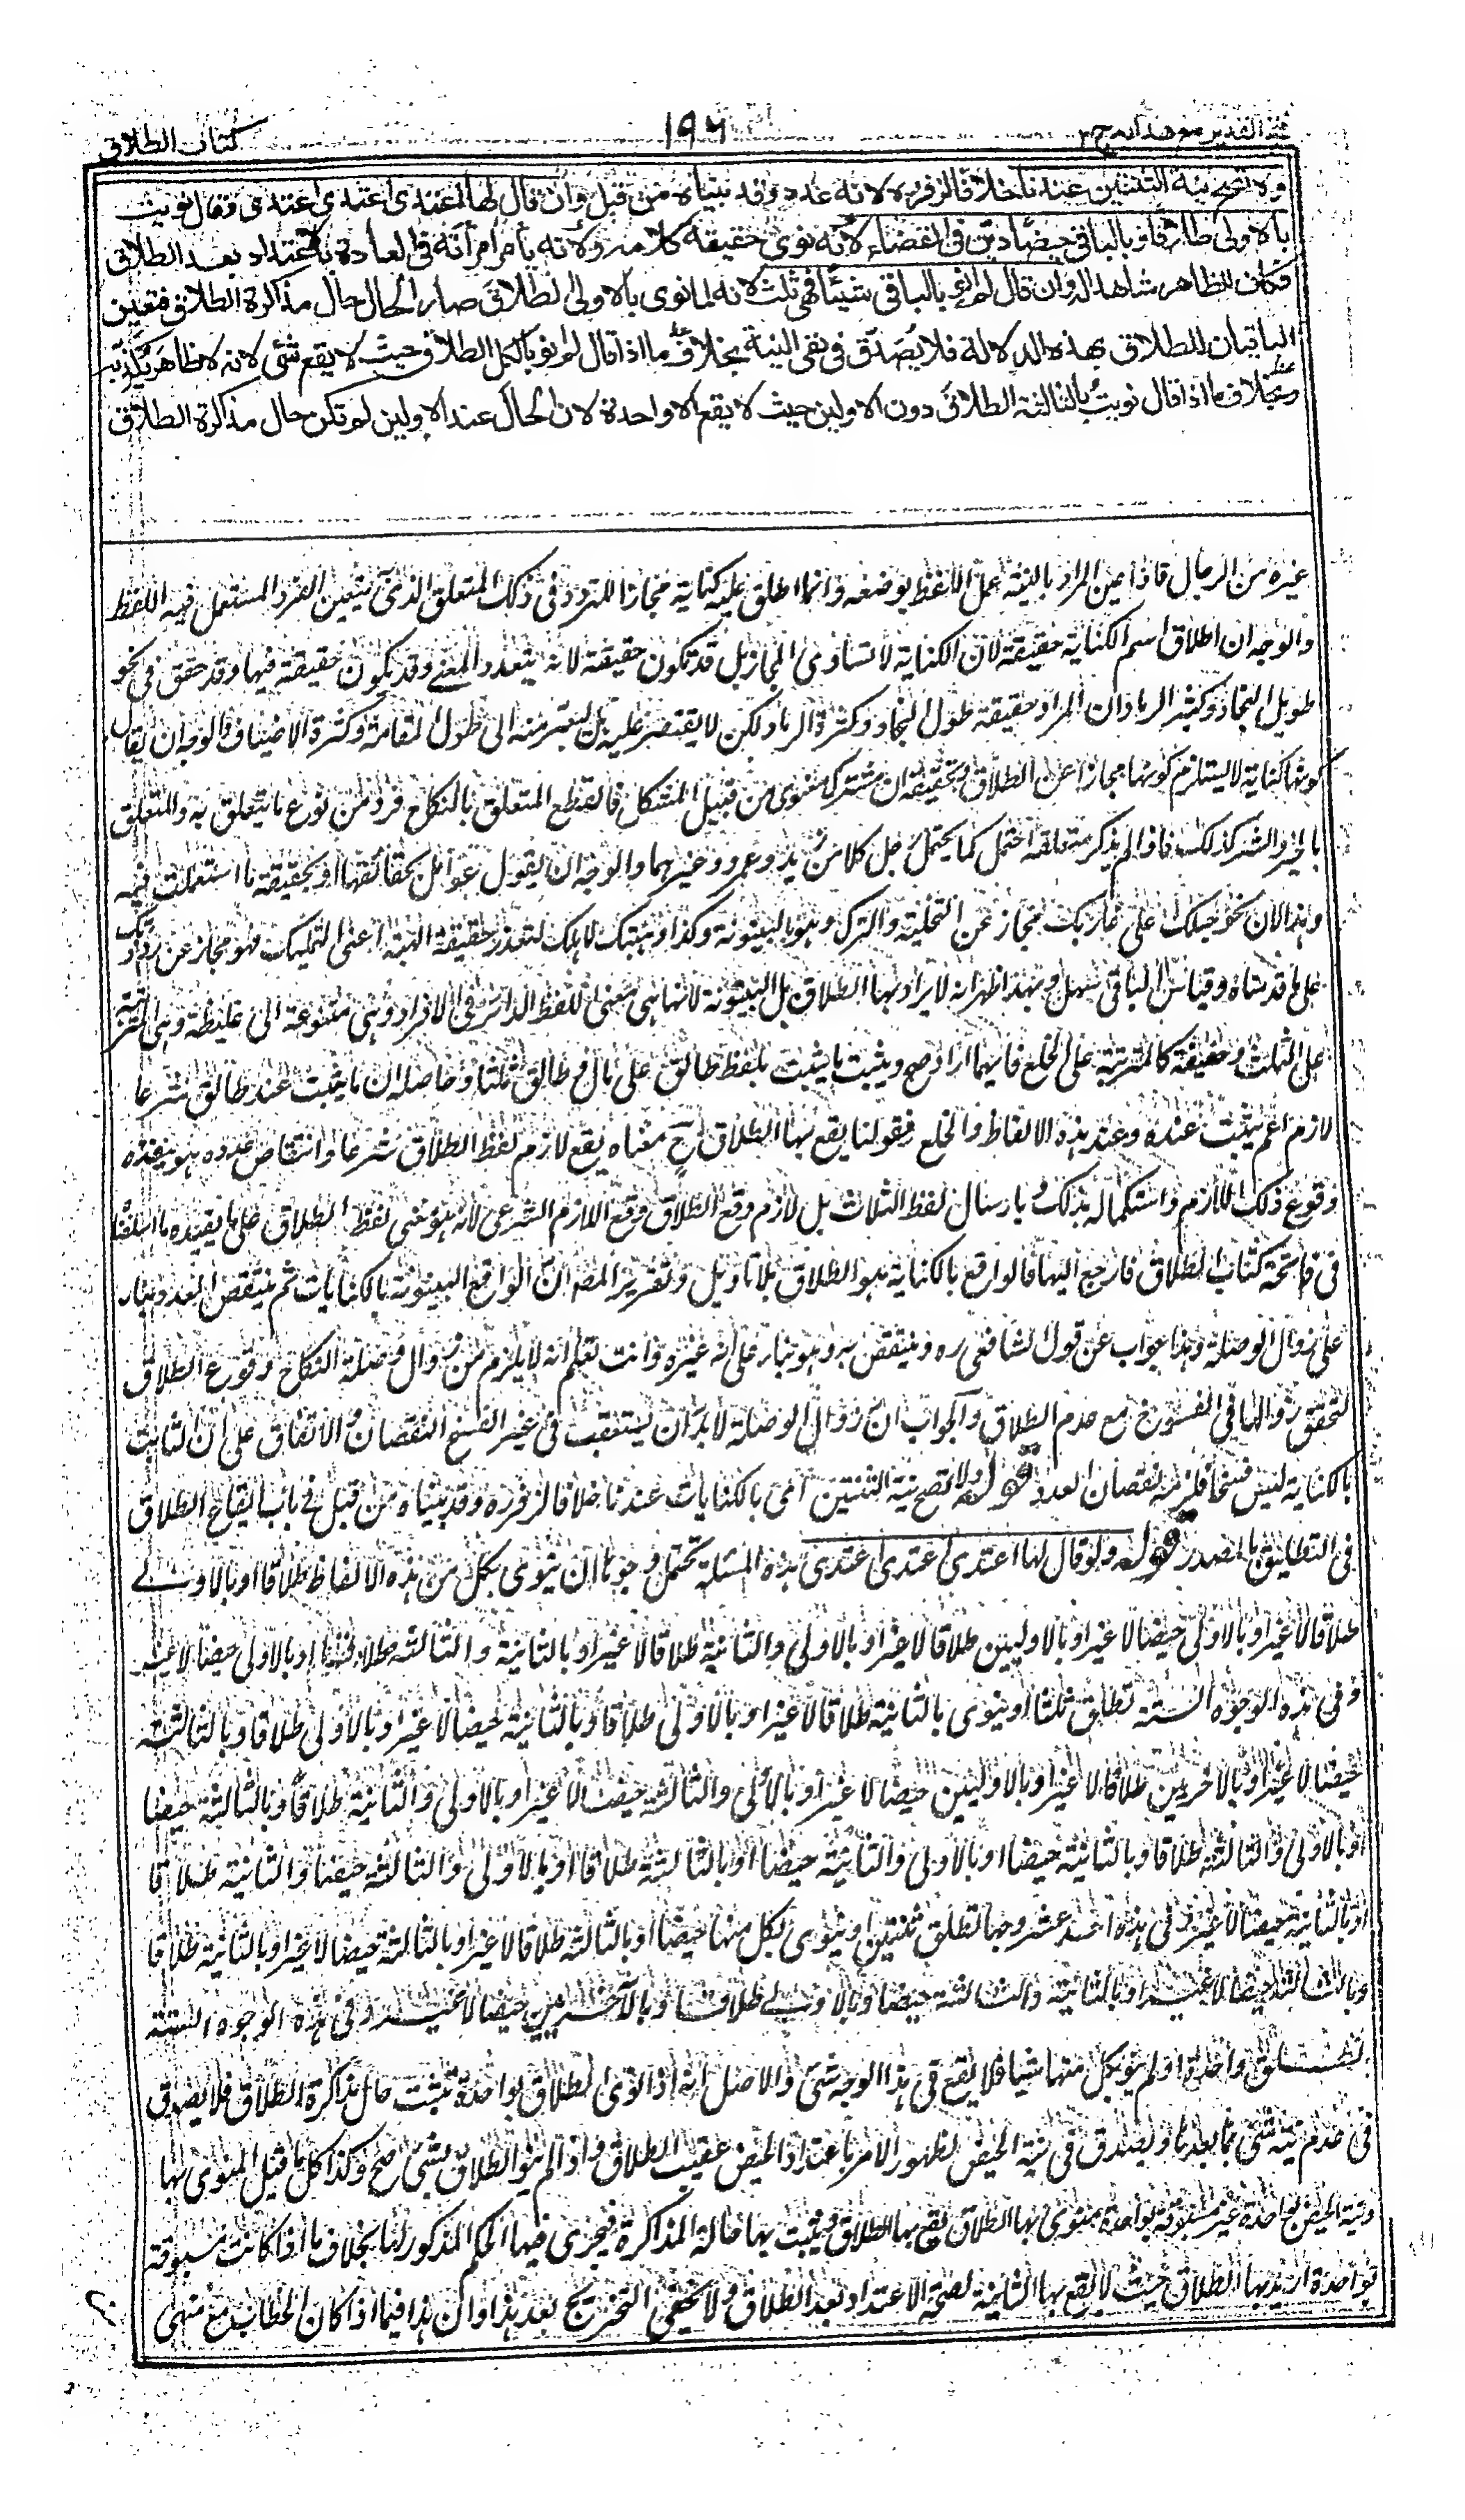 فتح القدير مع هدايه ج٢ ١٩٦ كتاب الطلاق
ولا تصح نية الثنتين عندنا خلافا لزفره لانه عدد وقد بيناه من قبل وان قال لها اعتدى اعتدى اعتدى وقال نويت
بالاولى طلاقا وبالباقى حيضا دين فى القضاء لانه نوى حقيقة كلامه ولانه يأمر امرأته فى العادة بالاعتداد بعد الطلاق
فكان الظاهر شاهدا له وان قال لم انو بالباقى شيئا فهى ثلث لانه لما نوى بالاولى الطلاق صار الحال حال مذاكرة الطلاق فتعين
الباقيان للطلاق بهذه الدلالة فلا يصدق فى نفى النية بخلاف ما اذا قال لم انو بالكل الطلاق حيث لا يقع شئ لانه لا ظاهر يكذبه
وبخلاف ما اذا قال نويت بالثالثة الطلاق دون الاوليين حيث لا يقع الا واحدة لان الحال عند الاوليين لم تكن حال مذاكرة الطلاق
غيره من الرجال فاذا عين المراد بالنية عمل اللفظ بوضعه وانما اطلق عليه كناية مجازا للتردد فى ذلك المتعلق الذى يتعين الفرد المستعمل فيه اللفظ
والوجه ان اطلاق اسم الكناية حقيقة لان الكناية لا تساوى المجاز بل قد تكون حقيقة لانه يتعدد المعنى وقد تكون حقيقة فيها وقد حقق فى نحو
طويل النجاد وكثير الرماد ان المراد حقيقة طول النجاد وكثرة الرماد لكن لا يقتصر عليه بل ليعبر منه الى طول القامة وكثرة الاضياف فالوجه ان يقال
كونها كناية لا يستلزم كونها مجازا عن الطلاق وتحقيقه ان مشتركا معنوى من قبيل المشكك فالقطع المتعلق بالنكاح فرد من نوع ما يتعلق به والمتعلق
بالخير والشر كذلك فاذا لم يذكر متعلقه احتمل كما يحتمل رجل كلا من زيد وعمرو وغيرهما والوجه ان يقول عوامل بحقائقها او بحقيقة ما استعملت فيه
وهذا لان نحو حبلك على غاربك مجاز عن التخلية والترك وهو بالبينونة وكذا وهبتك لاهلك لتعذر حقيقة الهبة اعنى التمليك فهو مجاز عن رددتك
على ما قدمناه وقياس الباقى سهل وبهذا ظهر انه لا يراد بها الطلاق بل البينونة لانها هى معنى اللفظ الدائر فى الافراد وهى متنوعة الى غليظة وهى المترتبة
على الثلث وخفيفة كالمترتبة على الخلع فايهما اراد صح ويثبت ما يثبت بلفظ طالق على مال وطالق ثلثا وحاصله ان ما يثبت عند طالق شرعا
لازم اعم يثبت عنده وعند هذه الالفاظ والخلع فقولنا يقع بها الطلاق الخ معناه يقع لازم لفظ الطلاق شرعا وانتقاص عدده هو بتعدد
وقوع ذلك اللازم واستكماله بذلك او بارسال لفظ الثلاث بل لازم وقع الطلاق وقع اللازم الشرعى لانه هو معنى لفظ الطلاق على ما يفيده ما اسلفنا
فى فاتحة كتاب الطلاق فارجع اليها فالواقع بالكناية هو الطلاق بلا تاويل وتقرير المصه ان الواقع البينونة بالكنايات ثم ينتقص العدد بناء
على زوال الوصلة وهذا جواب عن قول الشافعى ره وينتقص به وهو بناء على انه غيره وانت تعلم انه لا يلزم من زوال وصلة النكاح وقوع الطلاق
لتحقق زوالها فى الفسوخ مع عدم الطلاق والجواب ان زوال الوصلة لا بد ان يستعقب فى غير الفسخ النقصان والاتفاق على ان الثابت
بالكناية ليس فسخا فلزمه نقصان العدد قوله ولا تصح نية الثنتين اى بالكنايات عندنا خلافا لزفر ره وقد بيناه من قبل فى باب ايقاع الطلاق
فى التطليق بالمصدر قوله ولو قال لها اعتدى اعتدى اعتدى هذه المسئلة تحتمل وجوها ان ينوى بكل من هذه الالفاظ طلاقا او بالاولى
طلاقا لا غير او بالاولى حيضا لا غير او بالاوليين طلاقا لا غير او بالاولى والثانية طلاقا لا غير او بالثانية والثالثة طلاقا او بالاولى حيضا لا غير
وفى هذه الوجوه الستة تطلق ثلثا او ينوى بالثانية طلاقا لا غير او بالاولى طلاقا وبالثانية حيضا لا غير او بالاولى طلاقا وبالثالثة
حيضا لا غير او بالاخريين طلاقا لا غير او بالاوليين حيضا لا غير او بالاولى والثالثة حيضا لا غير او بالاولى والثانية طلاقا وبالثالثة حيضا
او بالاولى والثالثة طلاقا وبالثانية حيضا او بالاولى والثانية حيضا او بالثالثة طلاقا او بالاولى والثالثة حيضا والثانية طلاقا
او بالثانية حيضا لا غير وفى هذه احد عشر وجها تطلق ثنتين او ينوى بكل منها حيضا او بالثالثة طلاقا لا غير او بالثالثة حيضا لا غير او بالثانية طلاقا
وبالثالثة حيضا لا غير او بالثانية والثالثة حيضا وبالاولى طلاقا وبالآخريين حيضا لا غير وفى هذه الوجوه الستة
تطلق واحدة او لم ينو بكل منها شيئا فلا يقع فى هذا الوجه شئ والاصل انه اذا نوى الطلاق بواحدة ثبتت حال مذاكرة الطلاق فلا يصدق
فى عدم نية شئ بما بعدها ويصدق فى نية الحيض لظهور الامر باعتداد الحيض عقيب الطلاق واذا لم ينو الطلاق بشئ صح وكذا كل ما قبل المنوى بها
ونية الحيض بواحدة غير مسبوقة بواحدة منوى بها الطلاق يقع بها الطلاق ويثبت بها حالة المذاكرة فيجرى فيها الحكم المذكور لها بخلاف ما اذا كانت مسبوقة
بواحدة اريد بها الطلاق حيث لا يقع بها الثانية لصحة الاعتداد بعد الطلاق ولا يخفى التخريج بعد هذا وان هذا فيما اذا كان الخطاب مع منهى